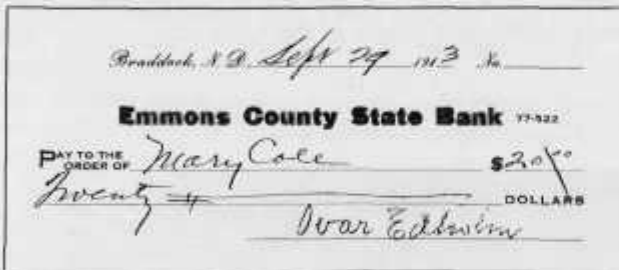 Braddock, N. D. Sept 29 1913 No.
Emmons County State Bank 77-522
PAY TO THE ORDER OF Mary Cole $20.00
Twenty DOLLARS
Ivar Edholm